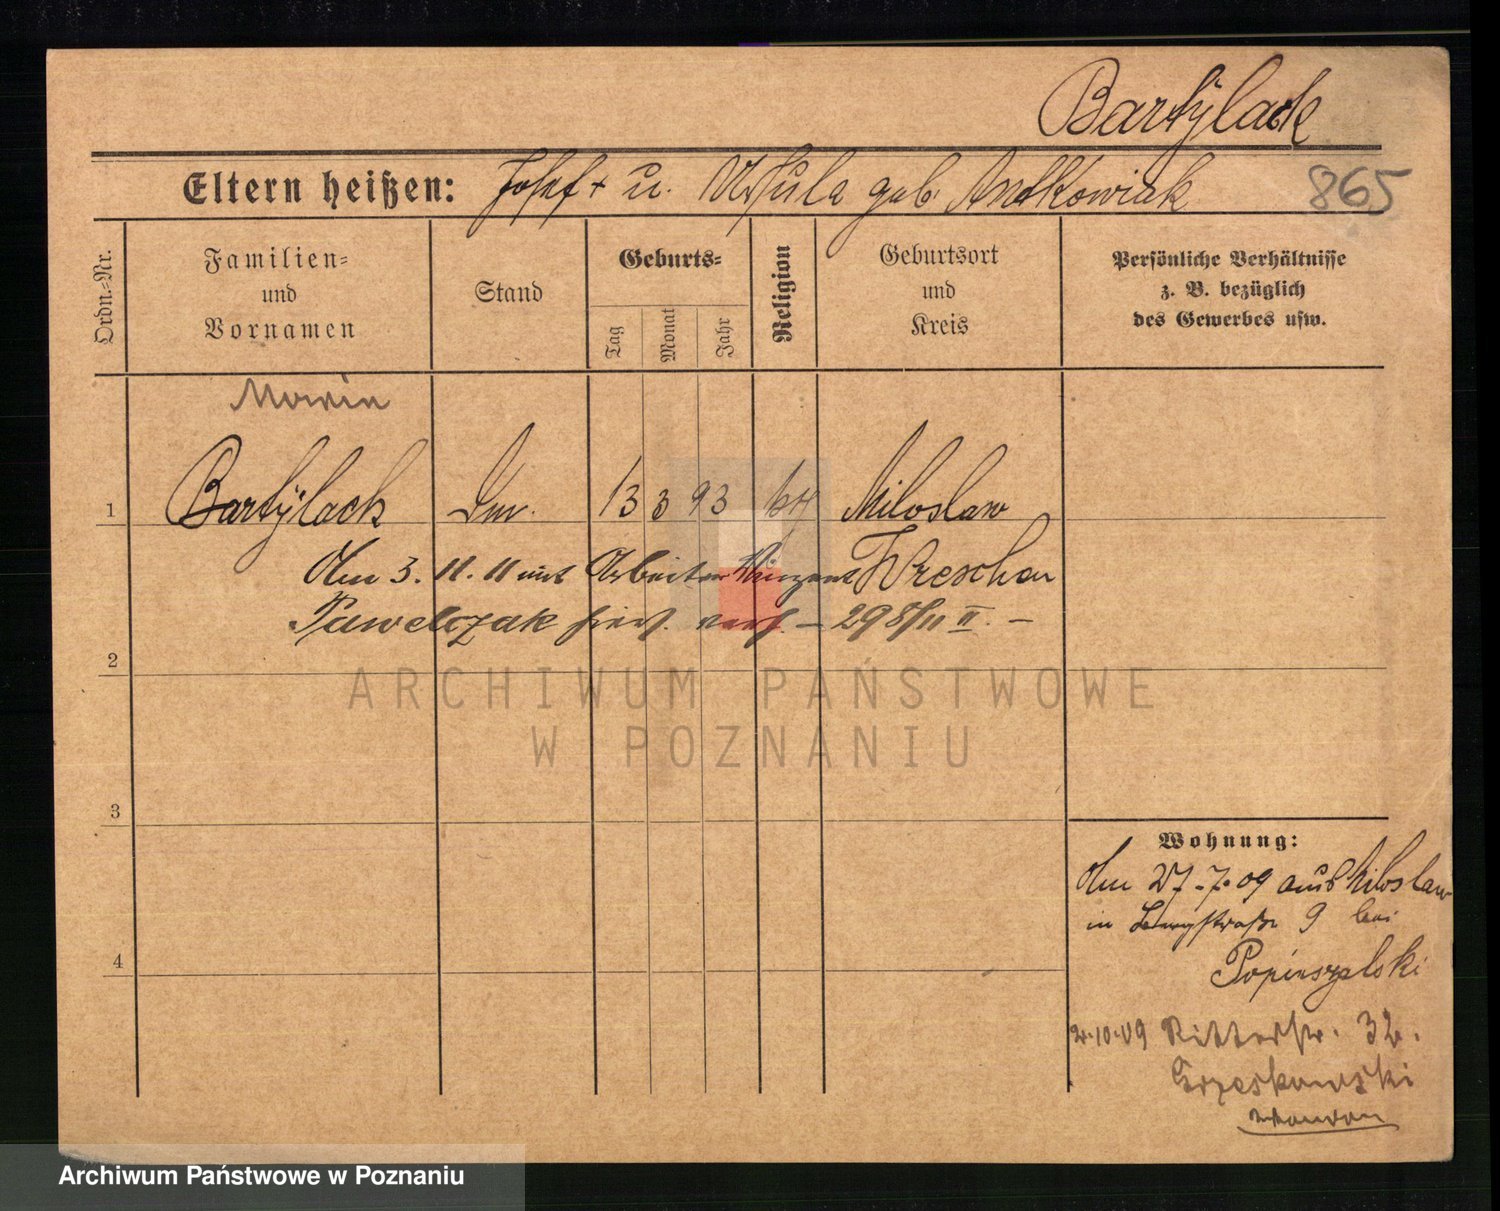 Bartÿlack
Eltern heißen: Josef + u. Ursula geb. Antkowiak
865
Ordn.-Nr.
Familien-
und
Vornamen
Stand
Geburts-
Tag
Monat
Jahr
Religion
Geburtsort
und
Kreis
Persönliche Verhältnisse
z. B. bezüglich
des Gewerbes usw.
1
Bartÿlack
13 3 93
kth
Miloslaw
Wreschen
Am 3. 11. 11 mit Arbeiter Vinzent
Pawelczak hier verh. – 298/11 II. –
2
3
4
Wohnung:
Am 27.7.09 aus Miloslaw
in 9 bei
Popinszalski
2.10.09 Ritterstr. 32.
Grzeskowski
ARCHIWUM PAŃSTWOWE
W POZNANIU
Archiwum Państwowe w Poznaniu